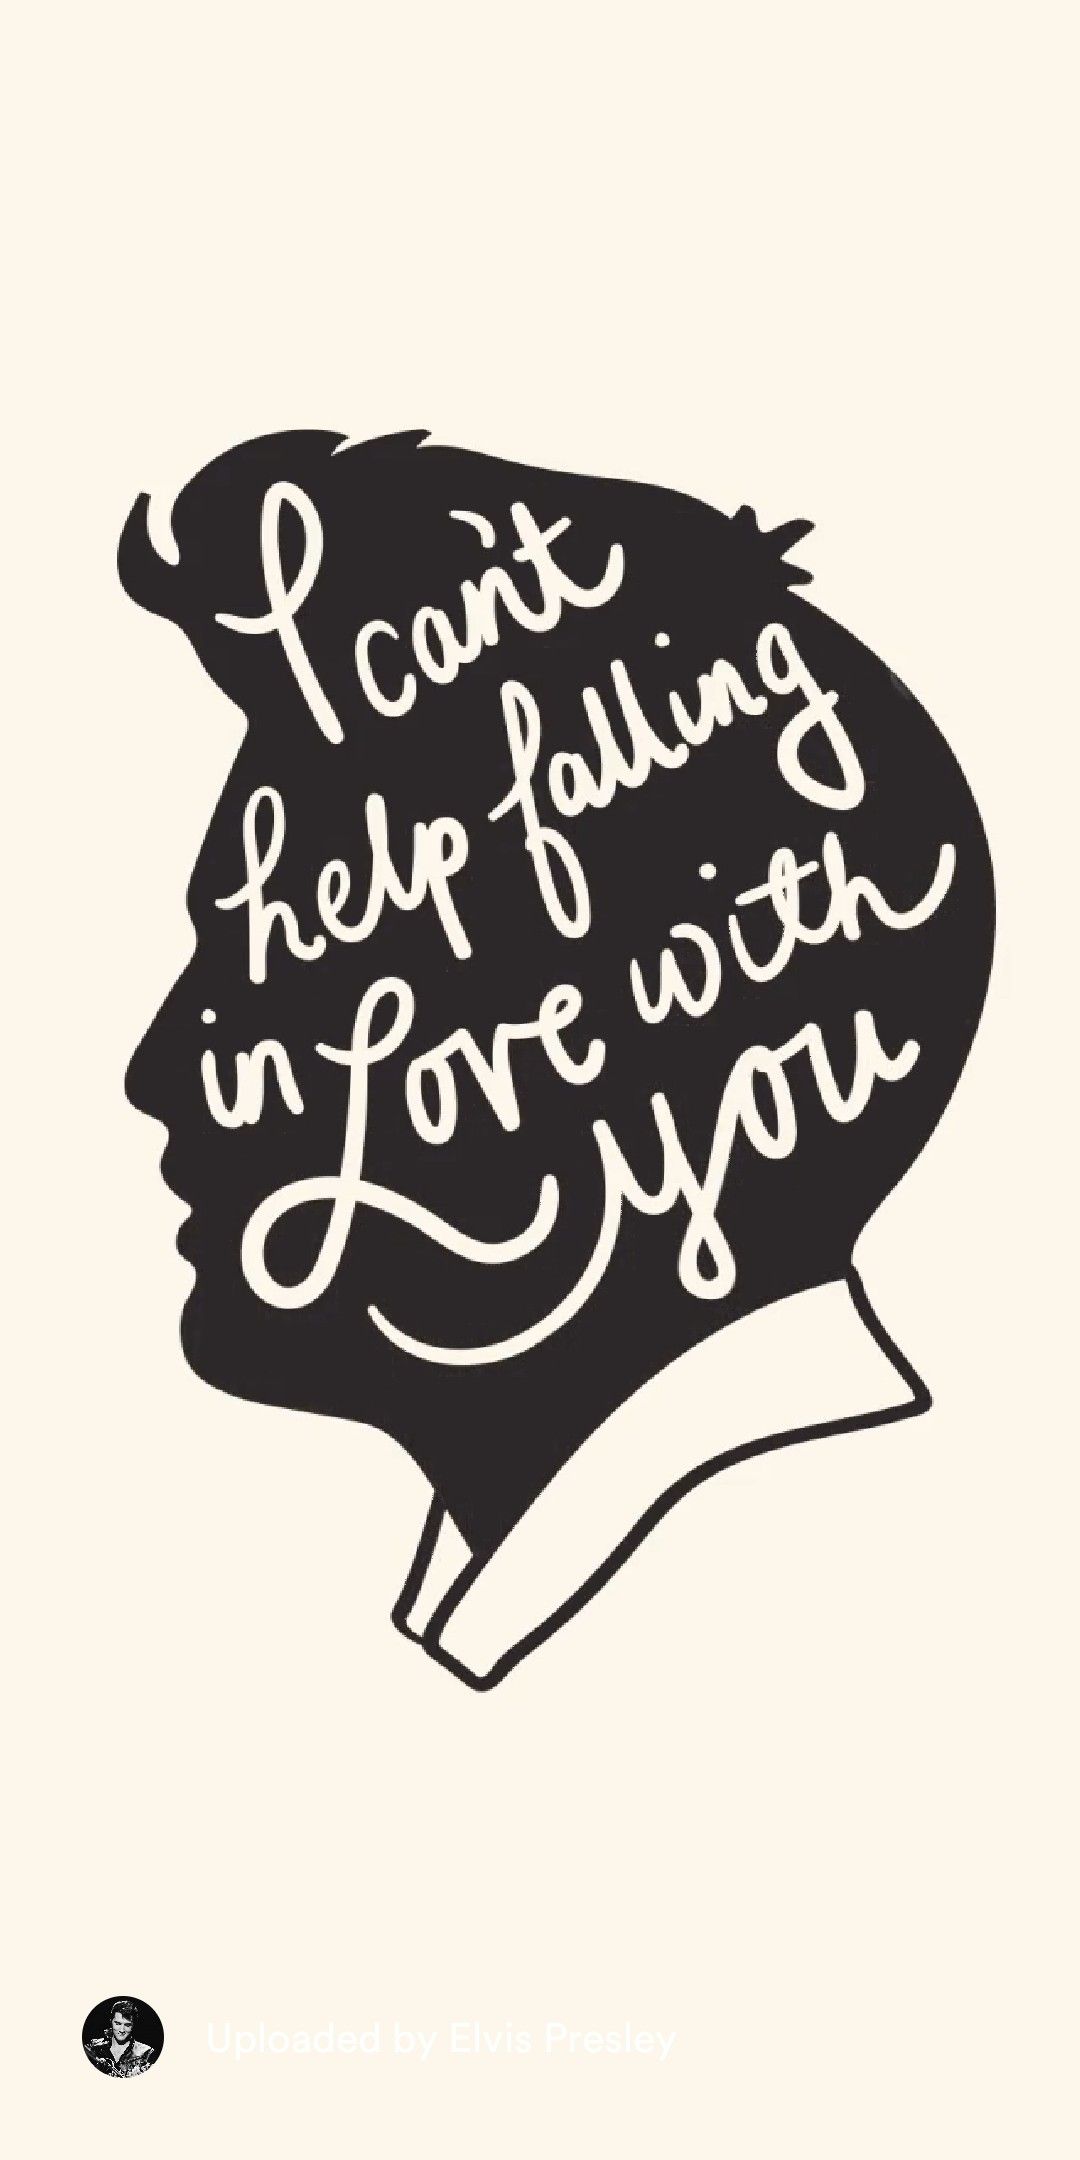 I can't
help falling
in Love with
you
Uploaded by Elvis Presley